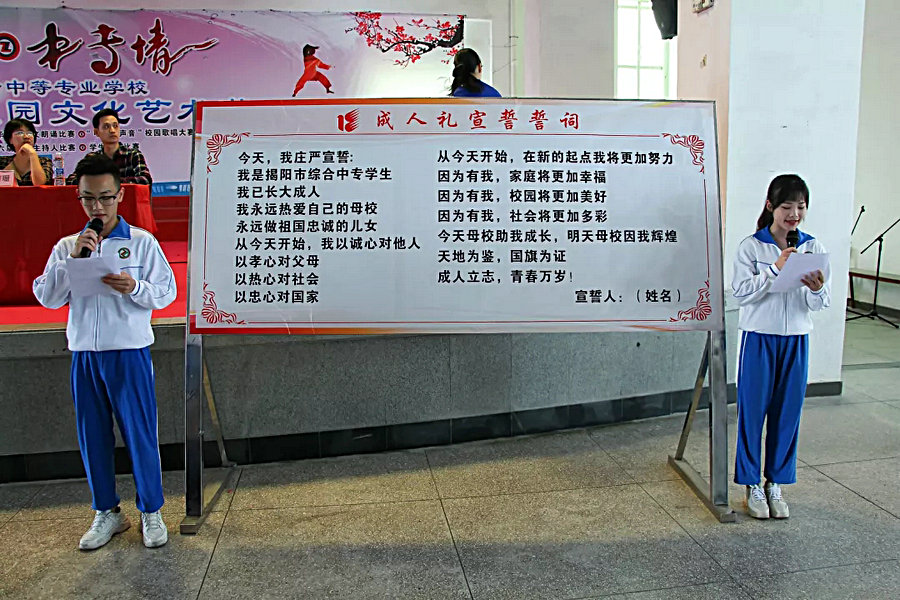 中专情
中等专业学校
园文化艺术
朗诵比赛
声音"校园歌唱大赛
主持人比赛
18 成人礼宣誓誓词
今天，我庄严宣誓：
我是揭阳市综合中专学生
我已长大成人
我永远热爱自己的母校
永远做祖国忠诚的儿女
从今天开始，我以诚心对他人
以孝心对父母
以热心对社会
以忠心对国家
从今天开始，在新的起点我将更加努力
因为有我，家庭将更加幸福
因为有我，校园将更加美好
因为有我，社会将更加多彩
今天母校助我成长，明天母校因我辉煌
天地为鉴，国旗为证
成人立志，青春万岁！
宣誓人：（姓名）